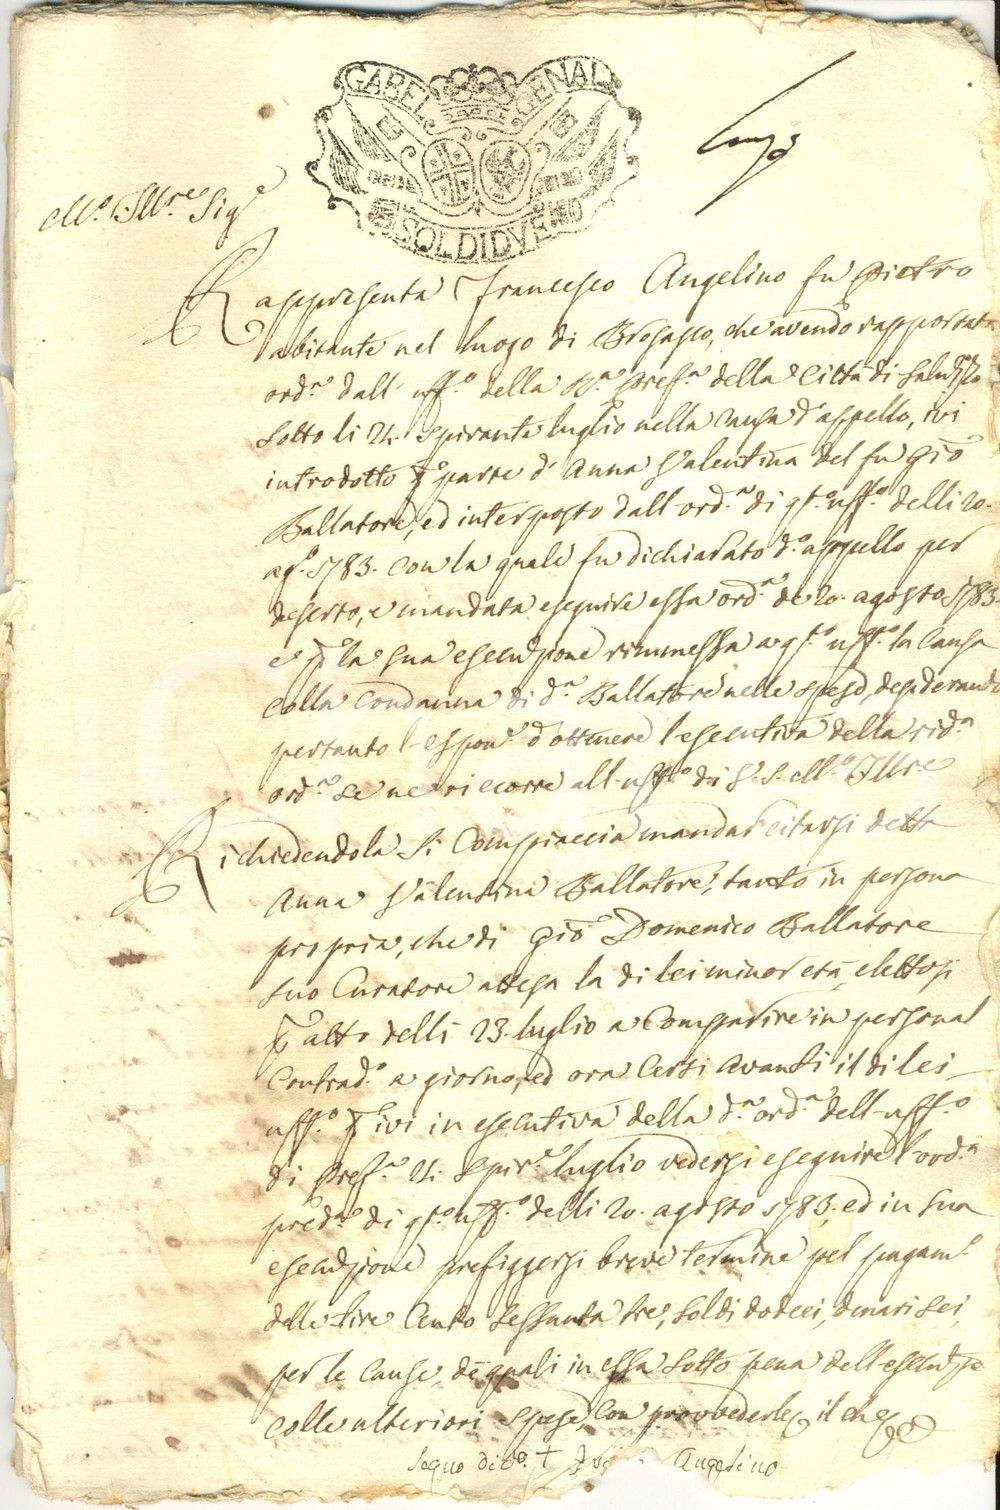 GABEL GENAL
SOLDI DVE
M.o Ill.re Sig.e
Rappresenta Francesco Angelino fu Pietro
abitante nel luogo di Brosasco, che avendo rapportat
ord.a dall' uff.o della R.a Pref.a della Città di Saluzzo
sotto li 24. spirante luglio nella causa d'appello, ivi
introdotto parte d' Anna Valentina del fu Gio
Ballatore, ed interposto dall' ord.a di q.to uff.o delli 20.
ag.o 1783. con la quale fu dichiarato d.o appello per
deserto, e mandata eseguire essa ord.a de 20. agosto 1783.
e la sua esecuzione rimmessa a q.to uff.o la causa
colla condanna di d.a Ballatore nelle spese, desiderando
pertanto l'espon.e d'ottenere l'esecutiva della sud.a
ord.a se ne ricorre all' uff.o di V. S. M.o Ill.re
Richiedendola si compiaccia mandar citarsi detta
Anna Valentina Ballatore, tanto in persona
propria, che di Gio Domenico Ballatore
suo Curatore attesa la di lei minor età, elettosi
atto delli 23. luglio a comparire in personal
contrad.o a giorno, ed ora certi avanti il di lei
uff.o ivi in esecutiva della d.a ord.a dell' uff.o
di Pref.a 24. spir.e luglio vedersi eseguire l'ord.a
pred.a di q.to uff.o delli 20. agosto 1783, ed in sua
esecuzione prefiggersi breve termine pel pagam.o
delle lire cento sessanta tre, soldi dodeci, denari sei,
per le cause, de quali in essa sotto pena dell' esecuz.e
colle ulteriori spese, con provvederle il che
Segno di + Angelino